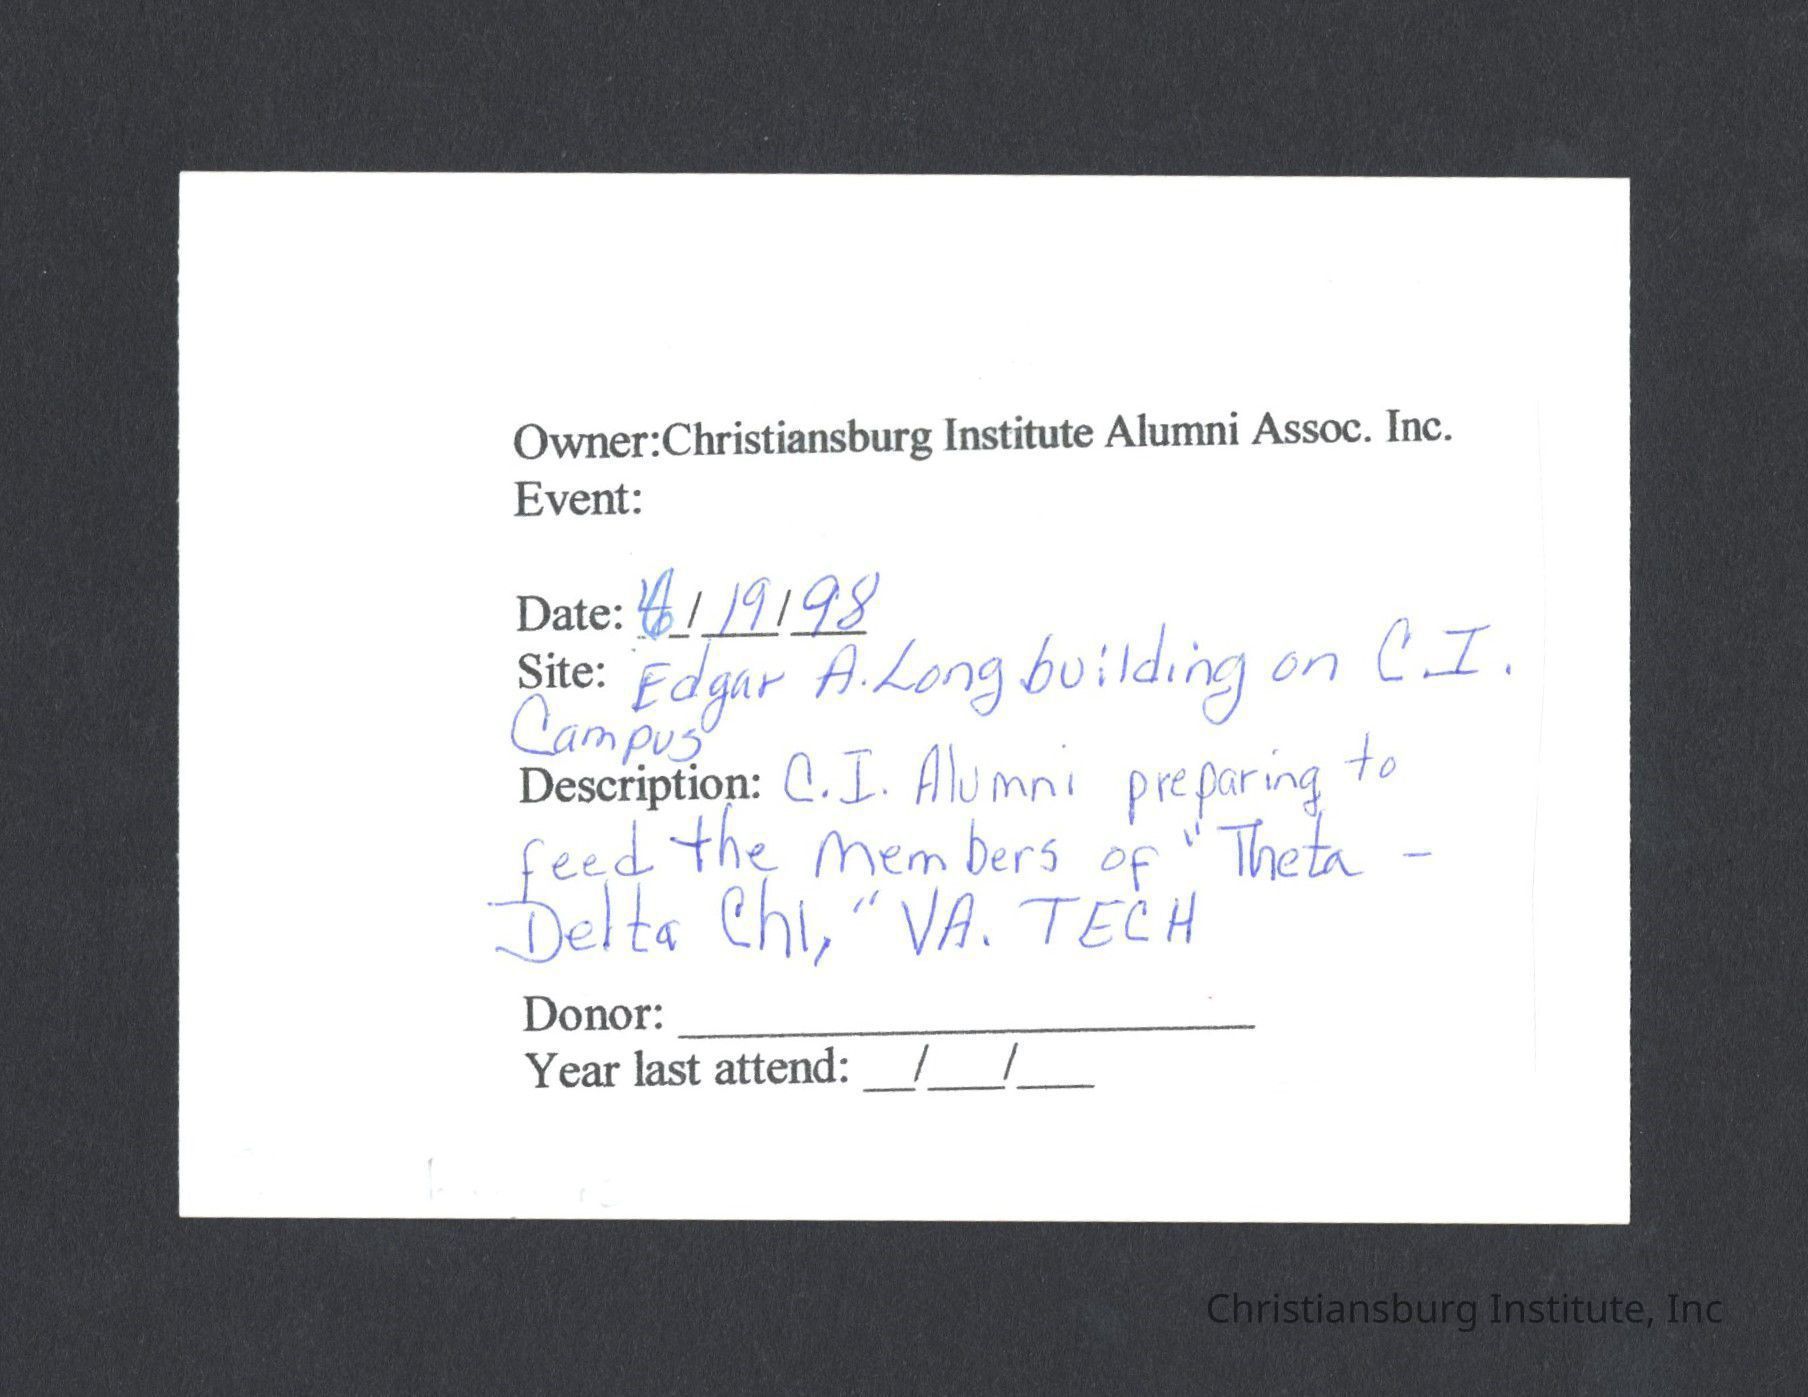 Owner:Christiansburg Institute Alumni Assoc. Inc.
Event:
Date: /19/98
Site: Edgar A. Long building on C.I.
Campus
Description: C.I. Alumni preparing to
feed the members of "Theta -
Delta Chi," VA. TECH
Donor:
Year last attend: / /
Christiansburg Institute, Inc